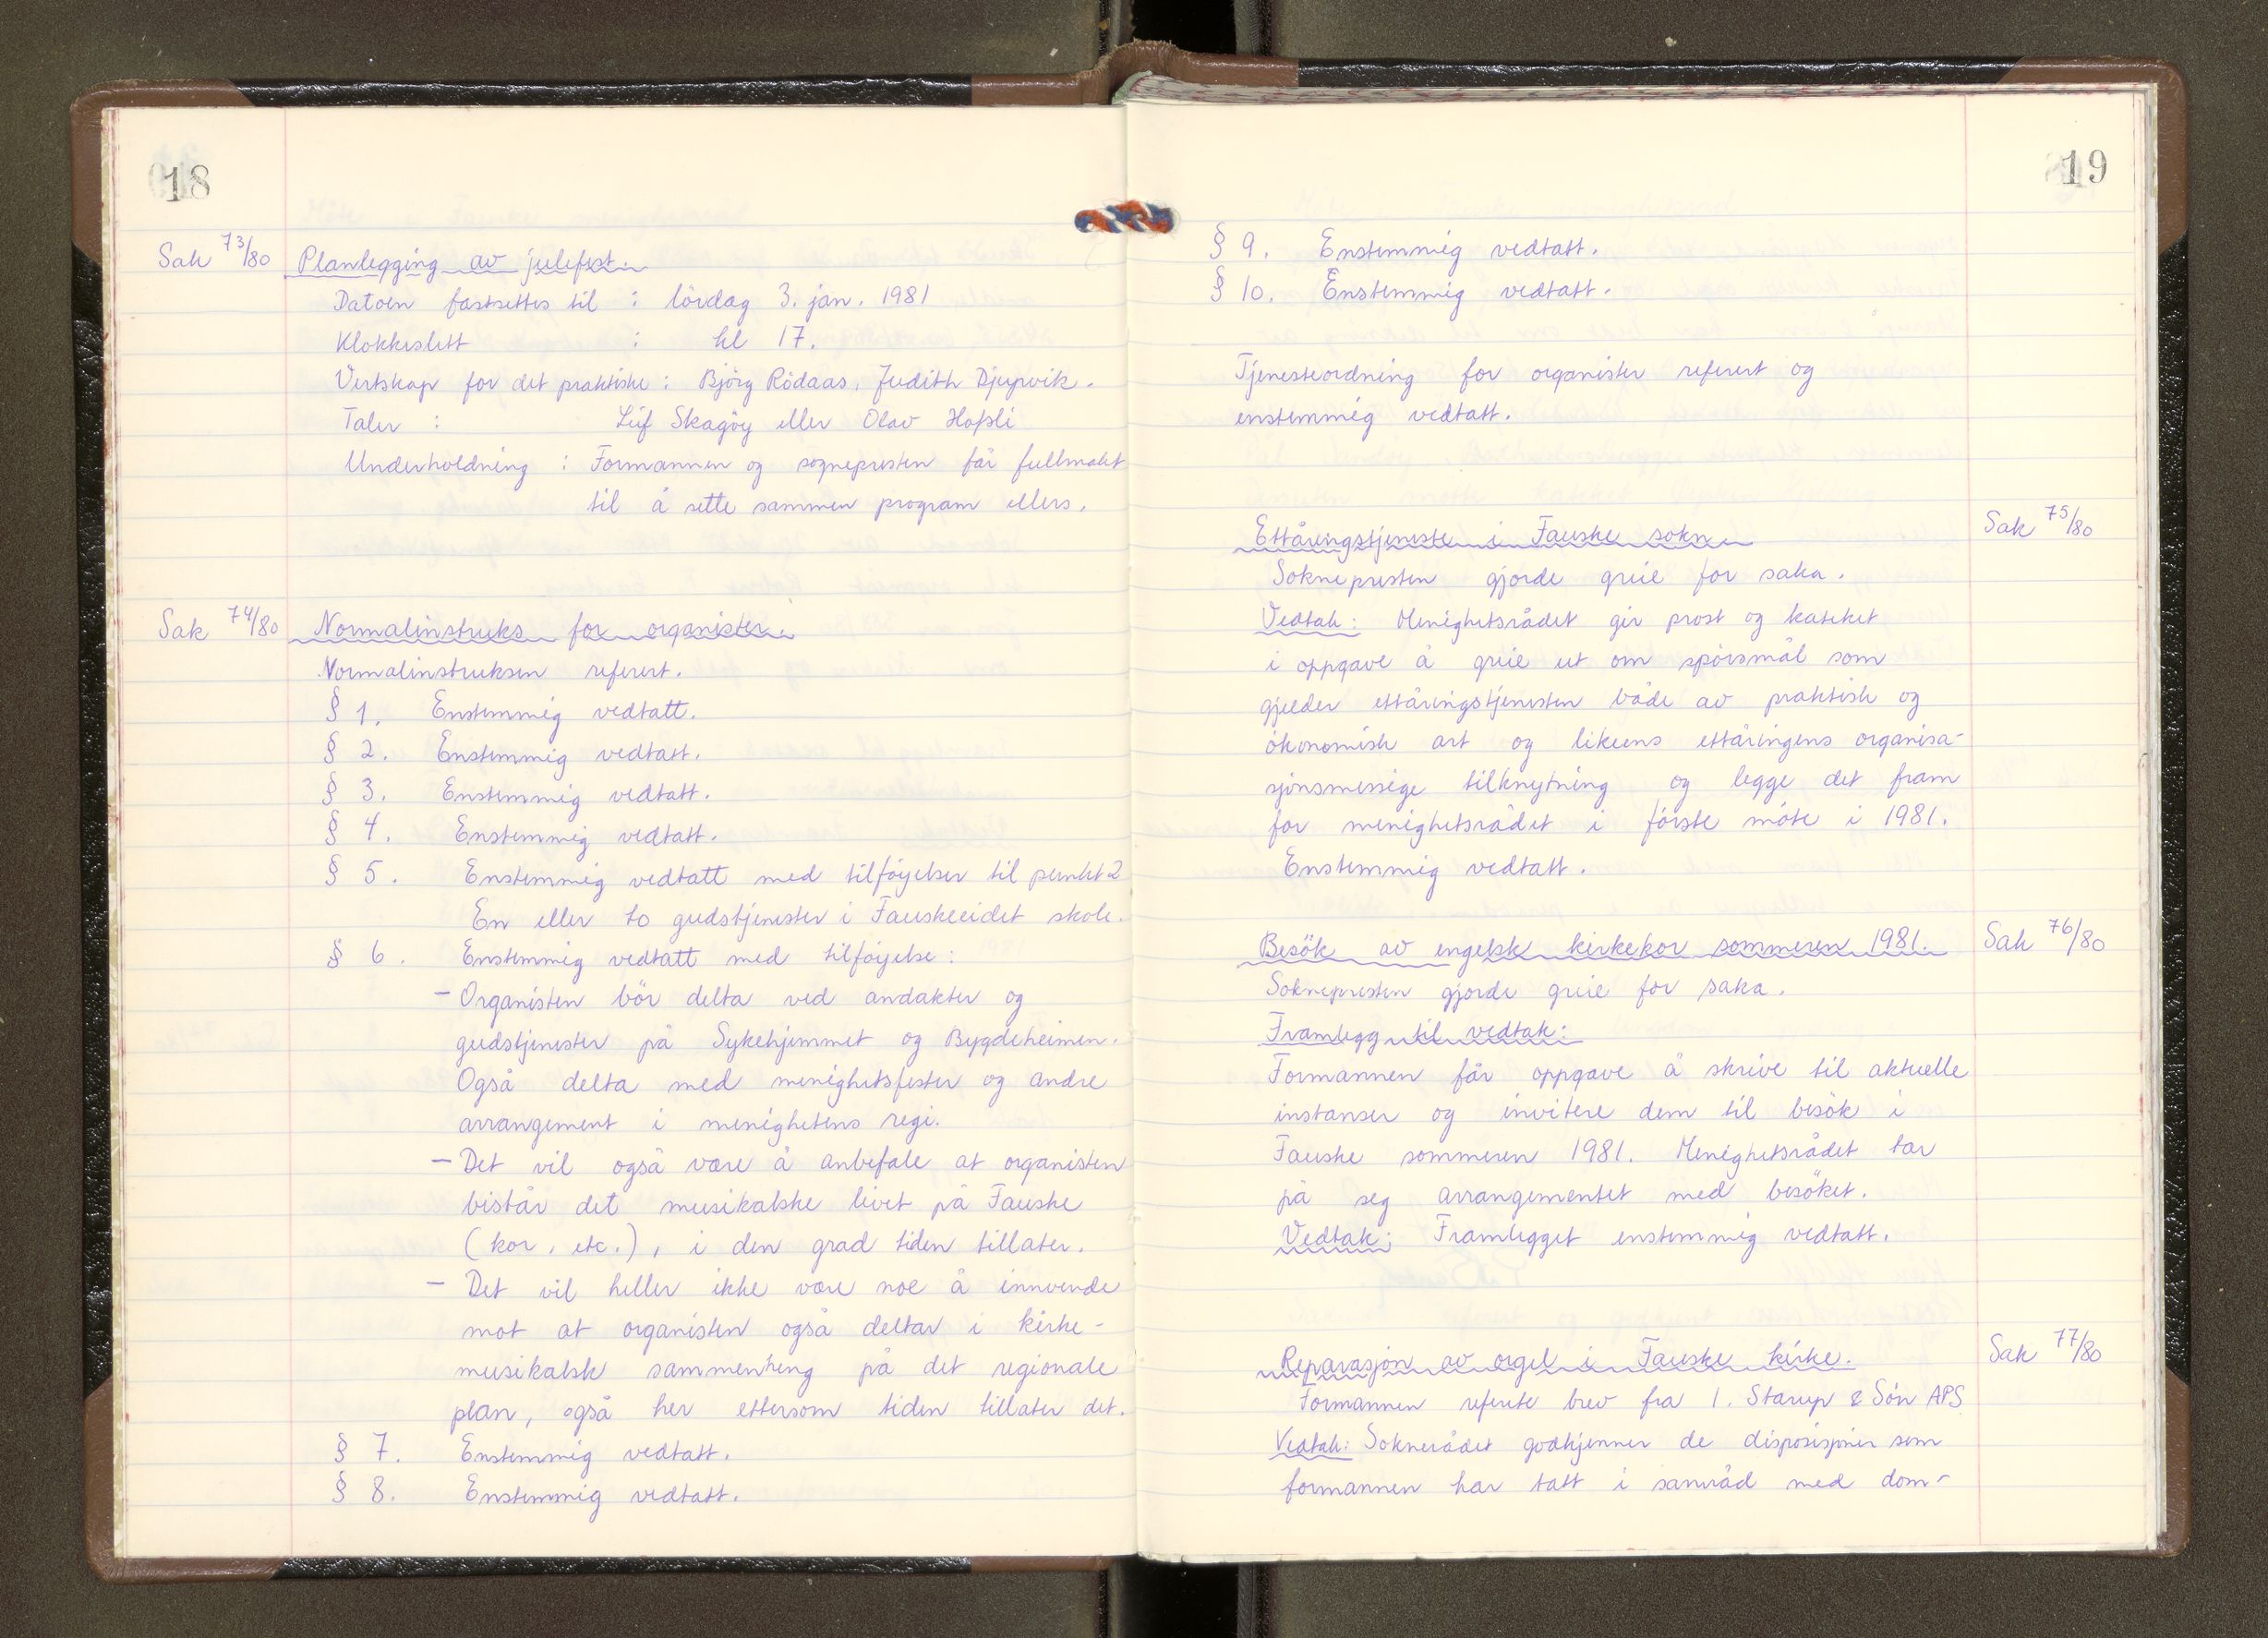 18
Sak 73/80 Planlegging av julefest.
Datoen fastsettes til : lördag 3. jan. 1981
Klokkeslett : kl 17.
Vertskap for det praktiske : Björg Rödaas, Judith Djupvik.
Taler : Leif Skagöy eller Olav Hopsli
Underholdning : Formannen og sognepresten får fullmakt
til å sette sammen program ellers.
Sak 74/80 Normalinstruks for organister.
Normalinstruksen referert.
§ 1. Enstemmig vedtatt.
§ 2. Enstemmig vedtatt.
§ 3. Enstemmig vedtatt.
§ 4. Enstemmig vedtatt.
§ 5. Enstemmig vedtatt med tilföyelser til punkt 2
En eller to gudstjenester i Fauskeeidet skole.
§ 6. Enstemmig vedtatt med tilföyelse :
- Organisten bör delta ved andakter og
gudstjenester på Sykehjemmet og Bygdeheimen.
Også delta med menighetsfester og andre
arrangement i menighetens regi.
- Det vil også være å anbefale at organisten
bistår det musikalske livet på Fauske
(kor, etc.), i den grad tiden tillater.
- Det vil heller ikke være noe å innvende
mot at organisten også deltar i kirke-
musikalsk sammenheng på det regionale
plan, også her ettersom tiden tillater det.
§ 7. Enstemmig vedtatt.
§ 8. Enstemmig vedtatt.
19
§ 9. Enstemmig vedtatt.
§ 10. Enstemmig vedtatt.
Tjenesteordning for organister referert og
enstemmig vedtatt.
Ettåringstjeneste i Fauske sokn Sak 75/80
Soknepresten gjorde greie for saka.
Vedtak: Menighetsrådet gir prost og kateket
i oppgave å greie ut om spörsmål som
gjelder ettåringstjenesten både av praktisk og
ökonomisk art og likeens ettåringens organisa-
sjonsmessige tilknytning og legge det fram
for menighetsrådet i förste möte i 1981.
Enstemmig vedtatt.
Besök av engelsk kirkekor sommeren 1981. Sak 76/80
Soknepresten gjorde greie for saka.
Framlegg til vedtak:
Formannen får oppgave å skrive til aktuelle
instanser og invitere dem til besök i
Fauske sommeren 1981. Menighetsrådet tar
på seg arrangementet med besöket.
Vedtak: Framlegget enstemmig vedtatt.
Reparasjon av orgel i Fauske kirke. Sak 77/80
Formannen referte brev fra I. Starup & Sön APS
Vedtak: Soknerådet godkjenner de disposisjoner som
formannen har tatt i samråd med dom-